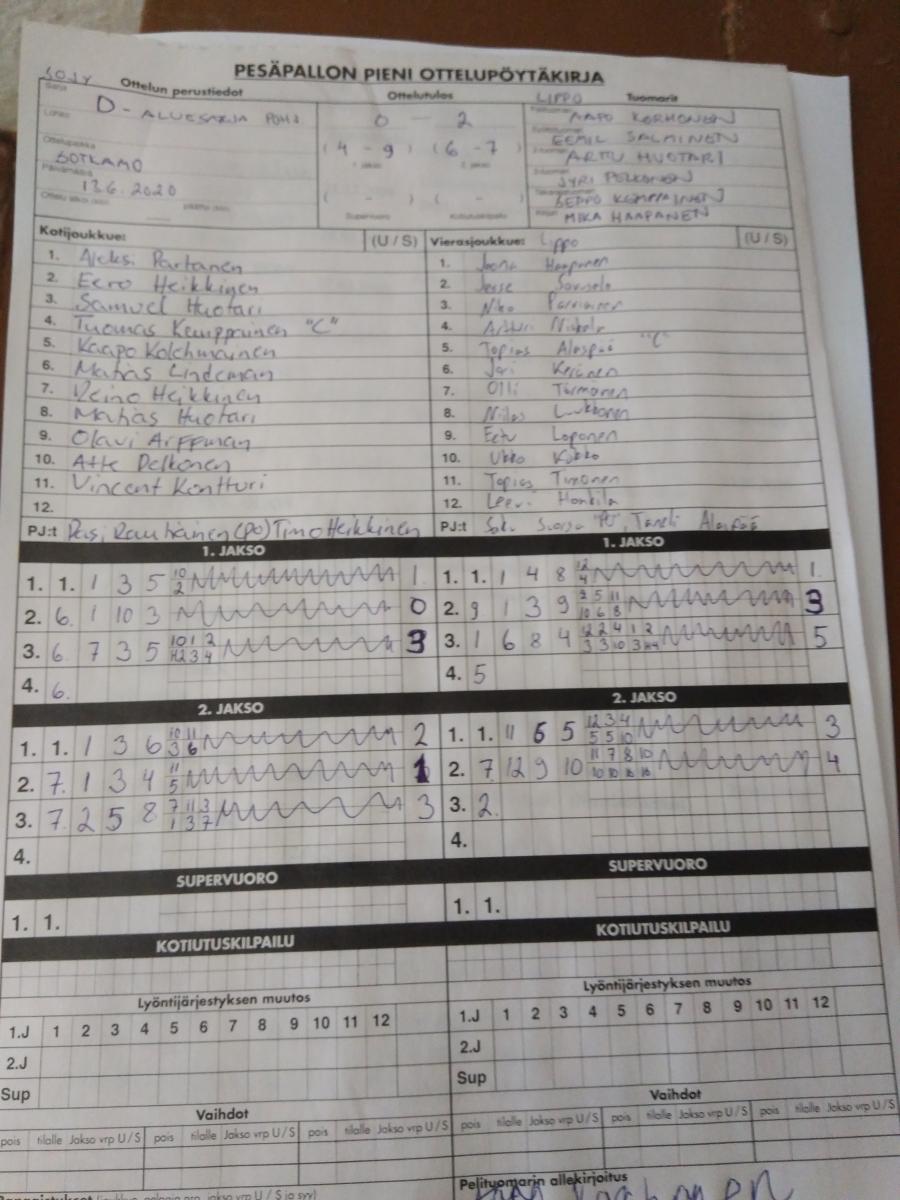 PESÄPALLON PIENI OTTELUPÖYTÄKIRJA
SOJY LIPPO
Ottelun perustiedot Ottelutulos Tuomarit
Sarja
D - ALUESARJA POHJ
0 - 2
AAPO KORHONEN
Lohko
EEMIL SALMINEN
Ottelupaikka
SOTKAMO
(4 - 9) (6 - 7)
1. jakso 2. jakso
ARTTU HUOTARI
Päivämäärä
13.6.2020
JYRI PELKONEN
( - ) ( - )
SEPPO KEMPPAINEN
Supervuoro Kotiutuskilpailu
MIKA HAAPANEN
Kotijoukkue: (U / S) Vierasjoukkue: Lippo (U / S)
1. Aleksi Partanen 1. Joona Haapanen
2. Eero Heikkinen 2. Jesse
3. Samuel Huotari 3. Niko Parviainen
4. Tuomas Kemppainen "C" 4. Artturi
5. Kaapo Kolehmainen 5. Topias Alaspää "C"
6. Matias Lindeman 6. Jari Keränen
7. Reino Heikkinen 7. Olli Törmänen
8. Matias Huotari 8. Niilas Luukkonen
9. Olavi Arffman 9. Eetu Loponen
10. Atte Pelkonen 10. Ukko Kokko
11. Vincent Kontturi 11. Topias Timonen
12. 12. Leevi Honkila
PJ:t Pasi Rauhiainen (PJ) Timo Heikkinen PJ:t Suorsa Taneli Alaspää
1. JAKSO 1. JAKSO
1. 1. 1 3 5 10 2 1 1. 1. 1 4 8 12 4 1
2. 6. 1 10 3 0 2. 9 1 3 9 2 5 11 10 6 8 3
3. 6 7 3 5 10 1 2 3 4 3 3. 1 6 8 4 12 2 4 1 2 3 3 10 3 5
4. 6. 4. 5
2. JAKSO 2. JAKSO
1. 1. 1 3 6 10 11 3 6 2 1. 1. 11 6 5 12 3 4 5 5 10 3
2. 7. 1 3 4 11 5 1 2. 7 12 9 10 11 7 8 10 10 10 4
3. 7. 2 5 8 7 11 3 1 3 7 3 3. 2.
4. 4.
SUPERVUORO SUPERVUORO
1. 1. 1. 1.
KOTIUTUSKILPAILU KOTIUTUSKILPAILU
Lyöntijärjestyksen muutos Lyöntijärjestyksen muutos
1.J 1 2 3 4 5 6 7 8 9 10 11 12 1.J 1 2 3 4 5 6 7 8 9 10 11 12
2.J 2.J
Sup Sup
Vaihdot Vaihdot
pois tilalle Jakso vrp U / S pois tilalle Jakso vrp U / S pois tilalle Jakso vrp U / S pois tilalle Jakso vrp U / S
Pelituomarin allekirjoitus